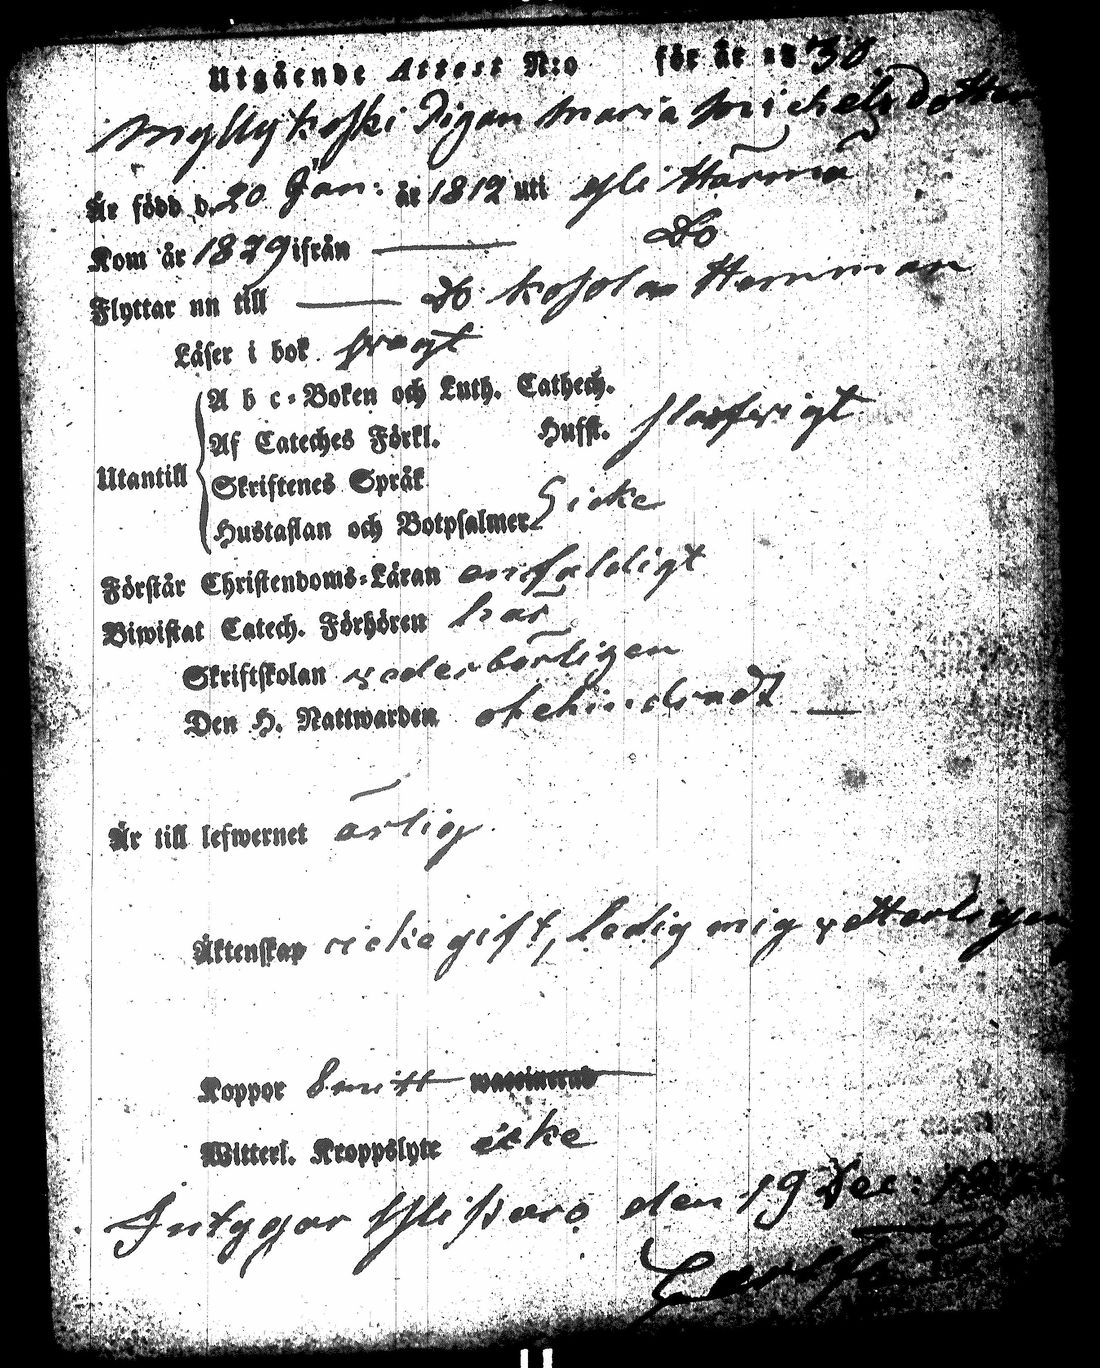 Utgående Attest N:o för år 1830
Myllykoski Pigan Maria Michelsdotter
Är född d. 20 Jan: år 1812 uti Ylihärmä
Kom år 1829 ifrån —— Do
Flyttar nu till —— Do Kosola Hemman
Läser i bok svagt
A b c-Boken och Luth. Cathech.
Af Cateches Förkl. Hufst. slarfvigt
Utantill
Skriftenes Språk
Hustaflan och Botpsalmer } icke
Förstår Christendoms-Läran enfaldigt
Biwistat Catech. Förhören har
Skriftskolan vederbörligen
Den H. Nattwarden obehindradt —
Är till lefwernet ärlig
Äktenskap icke gift, ledig mig vetterligen
Koppor Smitt waccinerad
Witterl. Kroppslyte icke
Intygar Ylistaro den 19 Dec: